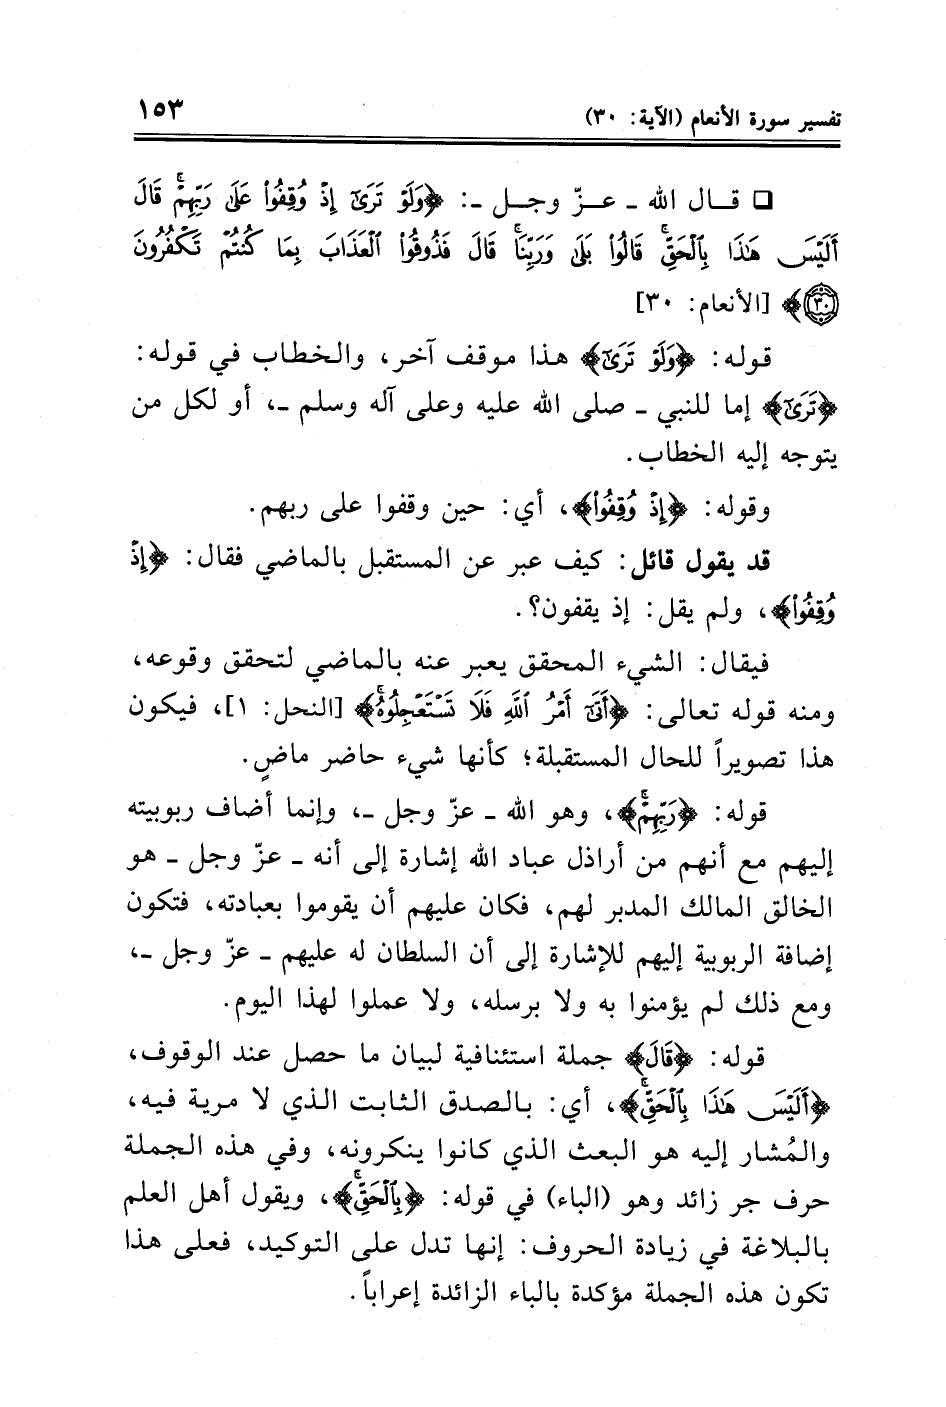 تفسير سورة الأنعام (الآية: ٣٠) ١٥٣
❑ قـال الله ـ عـزّ وجـل ـ: ﴿وَلَوۡ تَرَىٰٓ إِذۡ وُقِفُواْ عَلَىٰ رَبِّهِمۡۚ قَالَ
أَلَيۡسَ هَٰذَا بِٱلۡحَقِّۚ قَالُواْ بَلَىٰ وَرَبِّنَاۚ قَالَ فَذُوقُواْ ٱلۡعَذَابَ بِمَا كُنتُمۡ تَكۡفُرُونَ
٣٠﴾ [الأنعام: ٣٠]
قوله: ﴿وَلَوۡ تَرَىٰٓ﴾ هذا موقف آخر، والخطاب في قوله:
﴿تَرَىٰٓ﴾ إما للنبي ـ صلى الله عليه وعلى آله وسلم ـ، أو لكل من
يتوجه إليه الخطاب.
وقوله: ﴿إِذۡ وُقِفُواْ﴾، أي: حين وقفوا على ربهم.
قد يقول قائل: كيف عبر عن المستقبل بالماضي فقال: ﴿إِذۡ
وُقِفُواْ﴾، ولم يقل: إذ يقفون؟.
فيقال: الشيء المحقق يعبر عنه بالماضي لتحقق وقوعه،
ومنه قوله تعالى: ﴿أَتَىٰٓ أَمۡرُ ٱللَّهِ فَلَا تَسۡتَعۡجِلُوهُۚ﴾ [النحل: ١]، فيكون
هذا تصويراً للحال المستقبلة؛ كأنها شيء حاضر ماضٍ.
قوله: ﴿رَبِّهِمۡۚ﴾، وهو الله ـ عزّ وجل ـ، وإنما أضاف ربوبيته
إليهم مع أنهم من أراذل عباد الله إشارة إلى أنه ـ عزّ وجل ـ هو
الخالق المالك المدبر لهم، فكان عليهم أن يقوموا بعبادته، فتكون
إضافة الربوبية إليهم للإشارة إلى أن السلطان له عليهم ـ عزّ وجل ـ،
ومع ذلك لم يؤمنوا به ولا برسله، ولا عملوا لهذا اليوم.
قوله: ﴿قَالَ﴾ جملة استئنافية لبيان ما حصل عند الوقوف،
﴿أَلَيۡسَ هَٰذَا بِٱلۡحَقِّۚ﴾، أي: بالصدق الثابت الذي لا مرية فيه،
والمُشار إليه هو البعث الذي كانوا ينكرونه، وفي هذه الجملة
حرف جر زائد وهو (الباء) في قوله: ﴿بِٱلۡحَقِّۚ﴾، ويقول أهل العلم
بالبلاغة في زيادة الحروف: إنها تدل على التوكيد، فعلى هذا
تكون هذه الجملة مؤكدة بالباء الزائدة إعراباً.